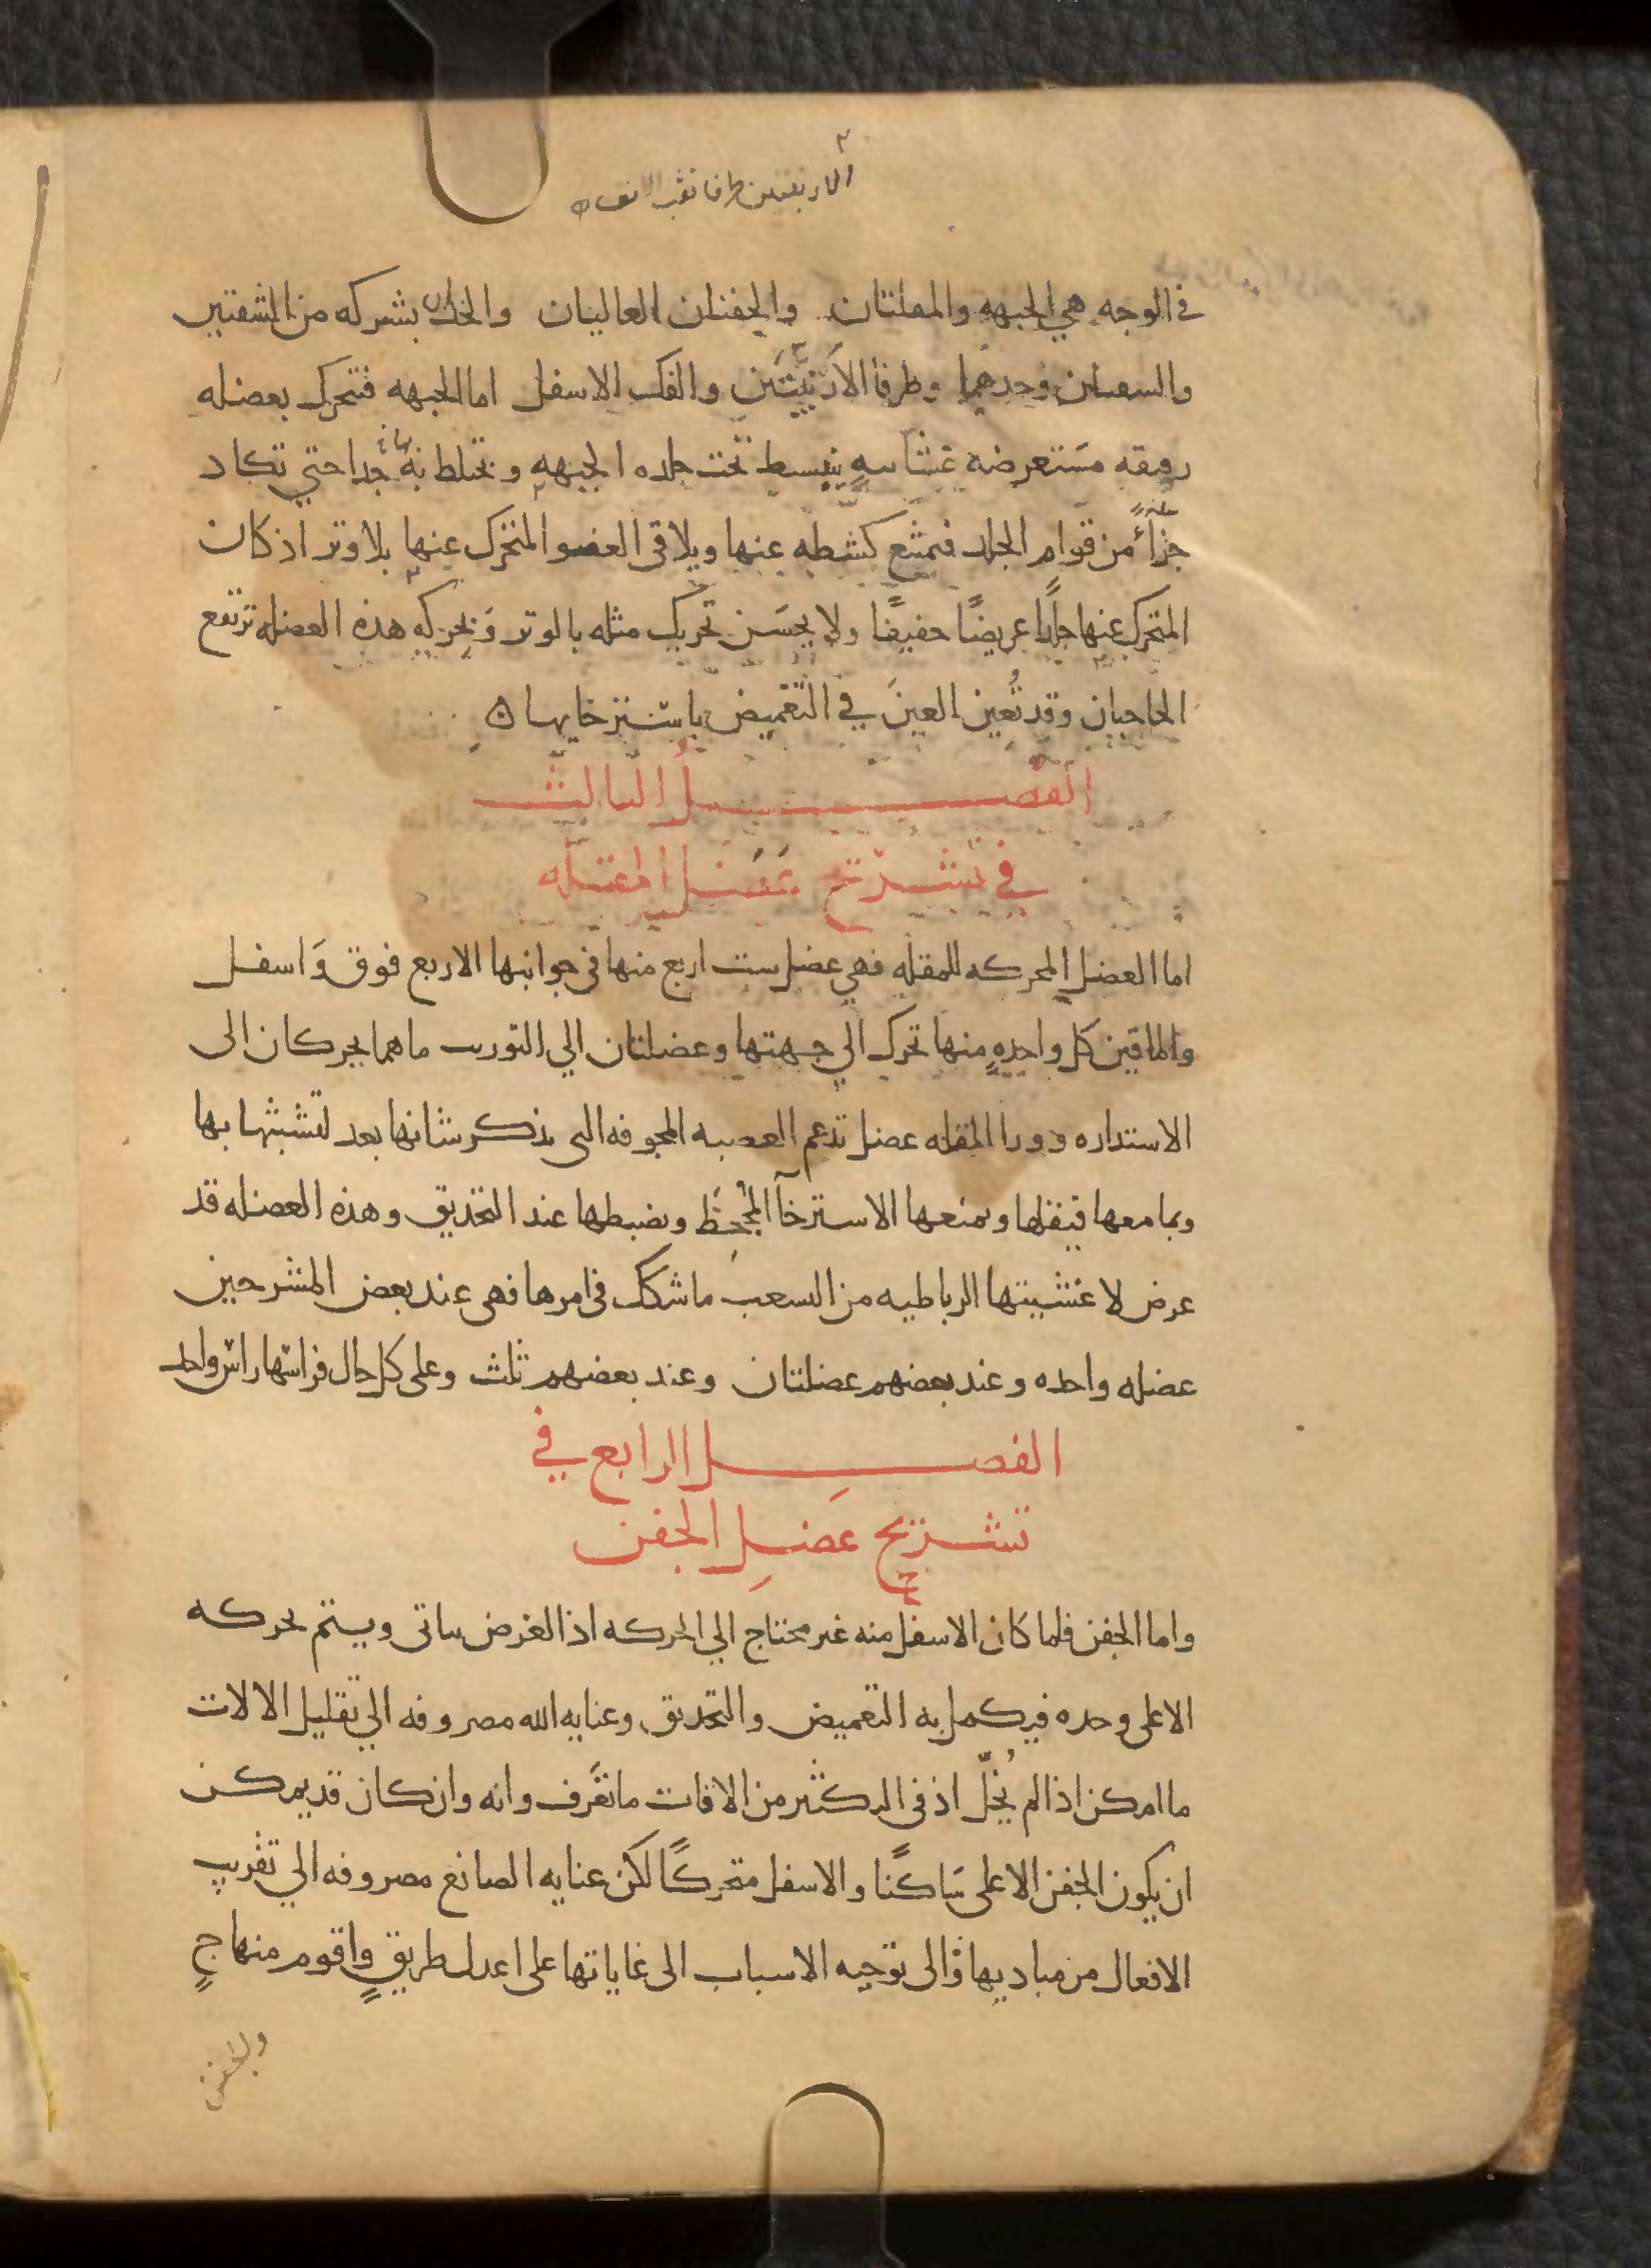 الارنبتين طرفا نقب الانف
في الوجه هي الجبهه والمقلتان والجفنان العاليان والخدان بشركه من الشفتين
والشفتان وحدهما وطرفا الارنبتين والفك الاسفل اما الجبهه فتحرك بعضله
رقيقه مستعرضة غشاىيه ينبسط تحت جلده الجبهه ويختلط به جدا حتي تكاد
جزاً من قوام الجلد فيمتنع كشطه عنها ويلاقي العضو المتحرك عنها بلا وتر اذ كان
المتحرك عنها جلداً عريضاً خفيفاً ولا يحسن تحريك مثله بالوتر وبحركه هذه العضله ترتفع
الحاجبان وقد تعين العين في التغميض باسترخايها
الفصل الثالث
في تشريح عضل المقله
اما العضل المحركه للمقله فهي عضل ست اربع منها في جوانبها الاربع فوق واسفل
والماقين كل واحدهٍ منها تحرك الي جهتها وعضلتان الي التوريب ماهما يحركان الى
الاستداره وورا المقله عضل تدعم العصبه المجوفه التى يذكر شانها بعد لتشبثها بها
وبما معها فيثقلها ويمنعها الاسترخآ المجحظ ويضبطها عند التحديق وهذه العضله قد
عرض لاغشيتها الرباطيه من التشعب ما شكك في امرها فهى عند بعض المشرحين
عضله واحده وعند بعضهم عضلتان وعند بعضهم ثلث وعلى كل حال فراسها راس واحد
الفصل الرابع في
تشريح عضل الجفن
واما الجفن فلما كان الاسفل منه غير محتاج الي الحركه اذ الغرض يتاتى ويتم بحركه
الاعلى وحده فيكمل به التغميض والتحديق وعنايه الله مصروفه الي تقليل الالات
ما امكن اذا لم يُخلّ اذ في التكثير من الافات ما تعرف وانه وان كان قد يمكن
ان يكون الجفن الاعلى ساكنًا والاسفل متحركًا لكن عنايه الصانع مصروفه الي تقريب
الافعال من مباديها والى توجيه الاسباب الى غاياتها على اعدل طريقٍ واقوم منهاجٍ
والجفن